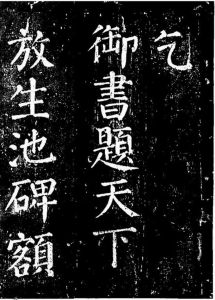 乞
御書題天下
放生池碑額